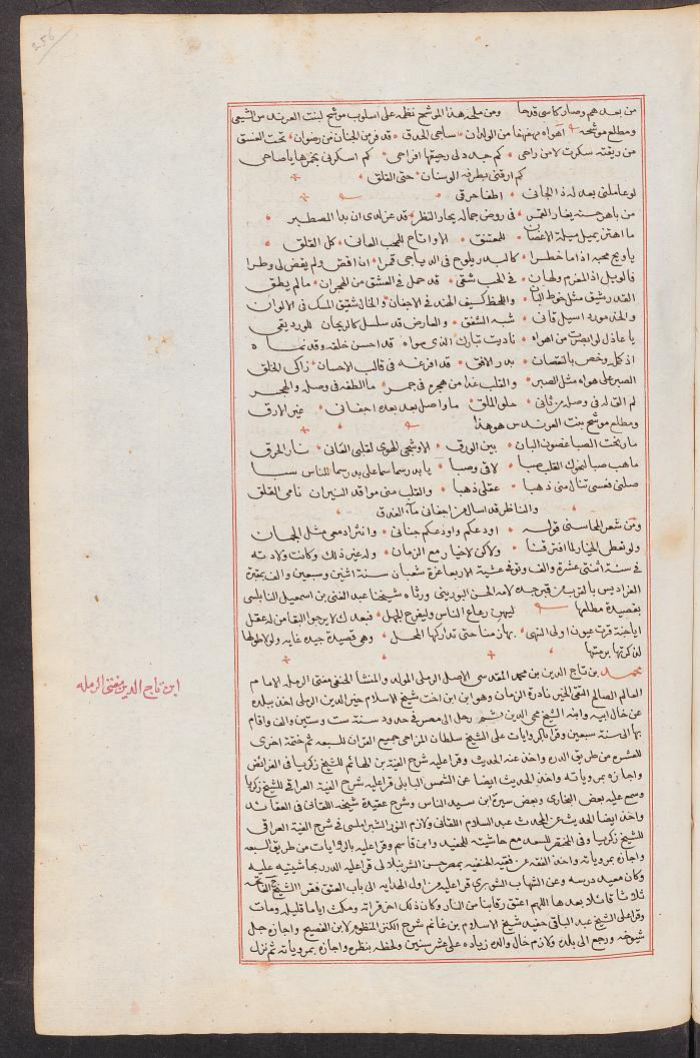 256
من بعدهم وصار كاسى قدحا ومن ملحه هذا الموشح نظمه على اسلوب موشح لبنت العرندس الشيعى
ومطلع موشحه اهواه مهفهفا من الولدان ساجى الحدق قد فر من الجنان من رضوان تحت الغسق
من ريقته سكرت لا من راحى كم جدد لى رحيقها افراحى كم اسكرنى بخمرها ياصاحى
كم ارقنى بطرفه الوسنان حتى القلق
لو عاملنى بعد له ذا الجانى اطفا حرقى
من باهر حسنه يغار القمر فى روض جماله يحار النظر قد عز لدى ان بدا المصطبر
ما اهتز يميل ميلة الاغصان للمعتنق الا واتاح للمحب العانى كل القلق
ياويح محبه اذا ما خطرا كالبدر يلوح فى الدياجى قمرا ان اقض ولم يقض لى وطرا
فالويل اذا لمغرم ولهان فى الحب شقى قد حمل فى العشق من الهجران مالم يطق
القد رشيق مثل خوط البان واللحظ كسيف الهند فى الاجفان والخال شقيق المسك فى الالوان
والخد مورد اسيل قانى شبه الشفق والعارض قد سلسل كالريحان للورد يقى
ياعاذل لو ابصرت من اهواه ناديت تبارك الذى سواه قد احسن خلقه وقد نماه
اذ كله وخص بالنقصان بدر الافق قد افرغه فى قالب الاحسان زاكى الخلق
الصبر على هواه مثل الصبر والقلب غدا من هجره فى جمر ما الطفه فى وصله والهجر
لم القه فى وصله من ثانى حلو الملق ما واصل بعد بعده اجفانى غير الارق
ومطلع موشح بنت العرندس هو هذا
ما رنحت الصبا غصون البان بين الورق الا وشجى الهوى لقلبى العانى نار الحرق
ما هب صبا لنحوك القلب صبا لاقى وصبا يابدر سما سما على بدر سما للناس سبا
صلنى فعسى تنال منى ذهبا عقلى ذهبا والقلب منى مواقد النيران نامى القلق
والناظر قد اسال من اجفانى ماء الغدق
ومن شعر المحاسنى قوله اودعكم واودعكم جنانى وانثر ادمعى مثل الجمان
ولو نعطى الخيار لما افترقنا ولاكن لاخيار مع الزمان وله غير ذلك وكانت ولادته
فى سنة اثنتى عشرة والف وتوفى عشية الاربعا غرة شعبان سنة اثنين وسبعين والف بمقبرة
الفراديس بالقرب من قبر جده لامه الحسن البورينى ورثاه شيخنا عبد الغنى بن اسمعيل النابلسى
بقصيدة مطلعها ليهن رعاع الناس وليفرح الجهل فبعدك لا يرجو البقا من له عقل
اياجنة قرت عيون اولى النهى بها زمنا حتى تداركها المحل وهى قصيدة جيده غايه ولولا طولها
لذكرتها برمتها
محمد بن تاج الدين بن محمد المقدسى الاصل الرملى المولد والمنشا الحنفى مفتى الرمله الامام
العالم الصالح التقى الخير نادرة الزمان وهو ابن اخت شيخ الاسلام خير الدين الرملى اخذ ببلده
عن خال ابيه وابنه الشيخ محى الدين ثم رحل الى مصر فى حدود سنة ست وستين والف واقام
بها الى سنة سبعين وقرا بالروايات على الشيخ سلطان المزاحى جميع القران للسبعه ثم ختمة اخرى
للعشره من طريق الدره واخذ عنه الحديث وقرا عليه شرح الفية بن الهائم للشيخ زكريا فى الفرائض
واجازه بمروياته واخذ الحديث ايضا عن الشمس البابلى قرا عليه شرح الفية العراقى للشيخ زكريا
وسمع عليه بعض البخارى وبعض سيرة ابن سيد الناس وشرح عقيدة شيخه اللقانى فى العقائد
واخذ ايضا الحديث عن المحدث عبد السلام اللقانى ولازم النور الشبراملسى فى شرح الفية العراقى
للشيخ زكريا وفى المختصر للسعد مع حاشيته للحفيد وابن قاسم وقرا عليه بالروايات من طريق السبعه
واجازه بمروياته واخذ الفقه عن فقيه الحنفيه بمصر حسن الشرنبلالى قرا عليه الدرر بحاشيتيه عليه
وكان معيد درسه وعن الشهاب الشوبرى قرا عليه من اول الهدايه الى باب العتق فقرا الشيخ الفاتحه
ثلاثا قائلا بعدها اللهم اعتق رقابنا من النار وكان ذلك اخر قراته ومكث اياما قليله ومات
وقرا على الشيخ عبد الباقى حفيد شيخ الاسلام بن غانم شرح الكنز المنظوم لابن الفصيح واجازه جل
شيوخه ورجع الى بلده ولازم خال والده زياده على عشر سنين ولحظه بنظره واجازه بمروياته ثم نزل
ابن تاج الدين مفتى الرمله